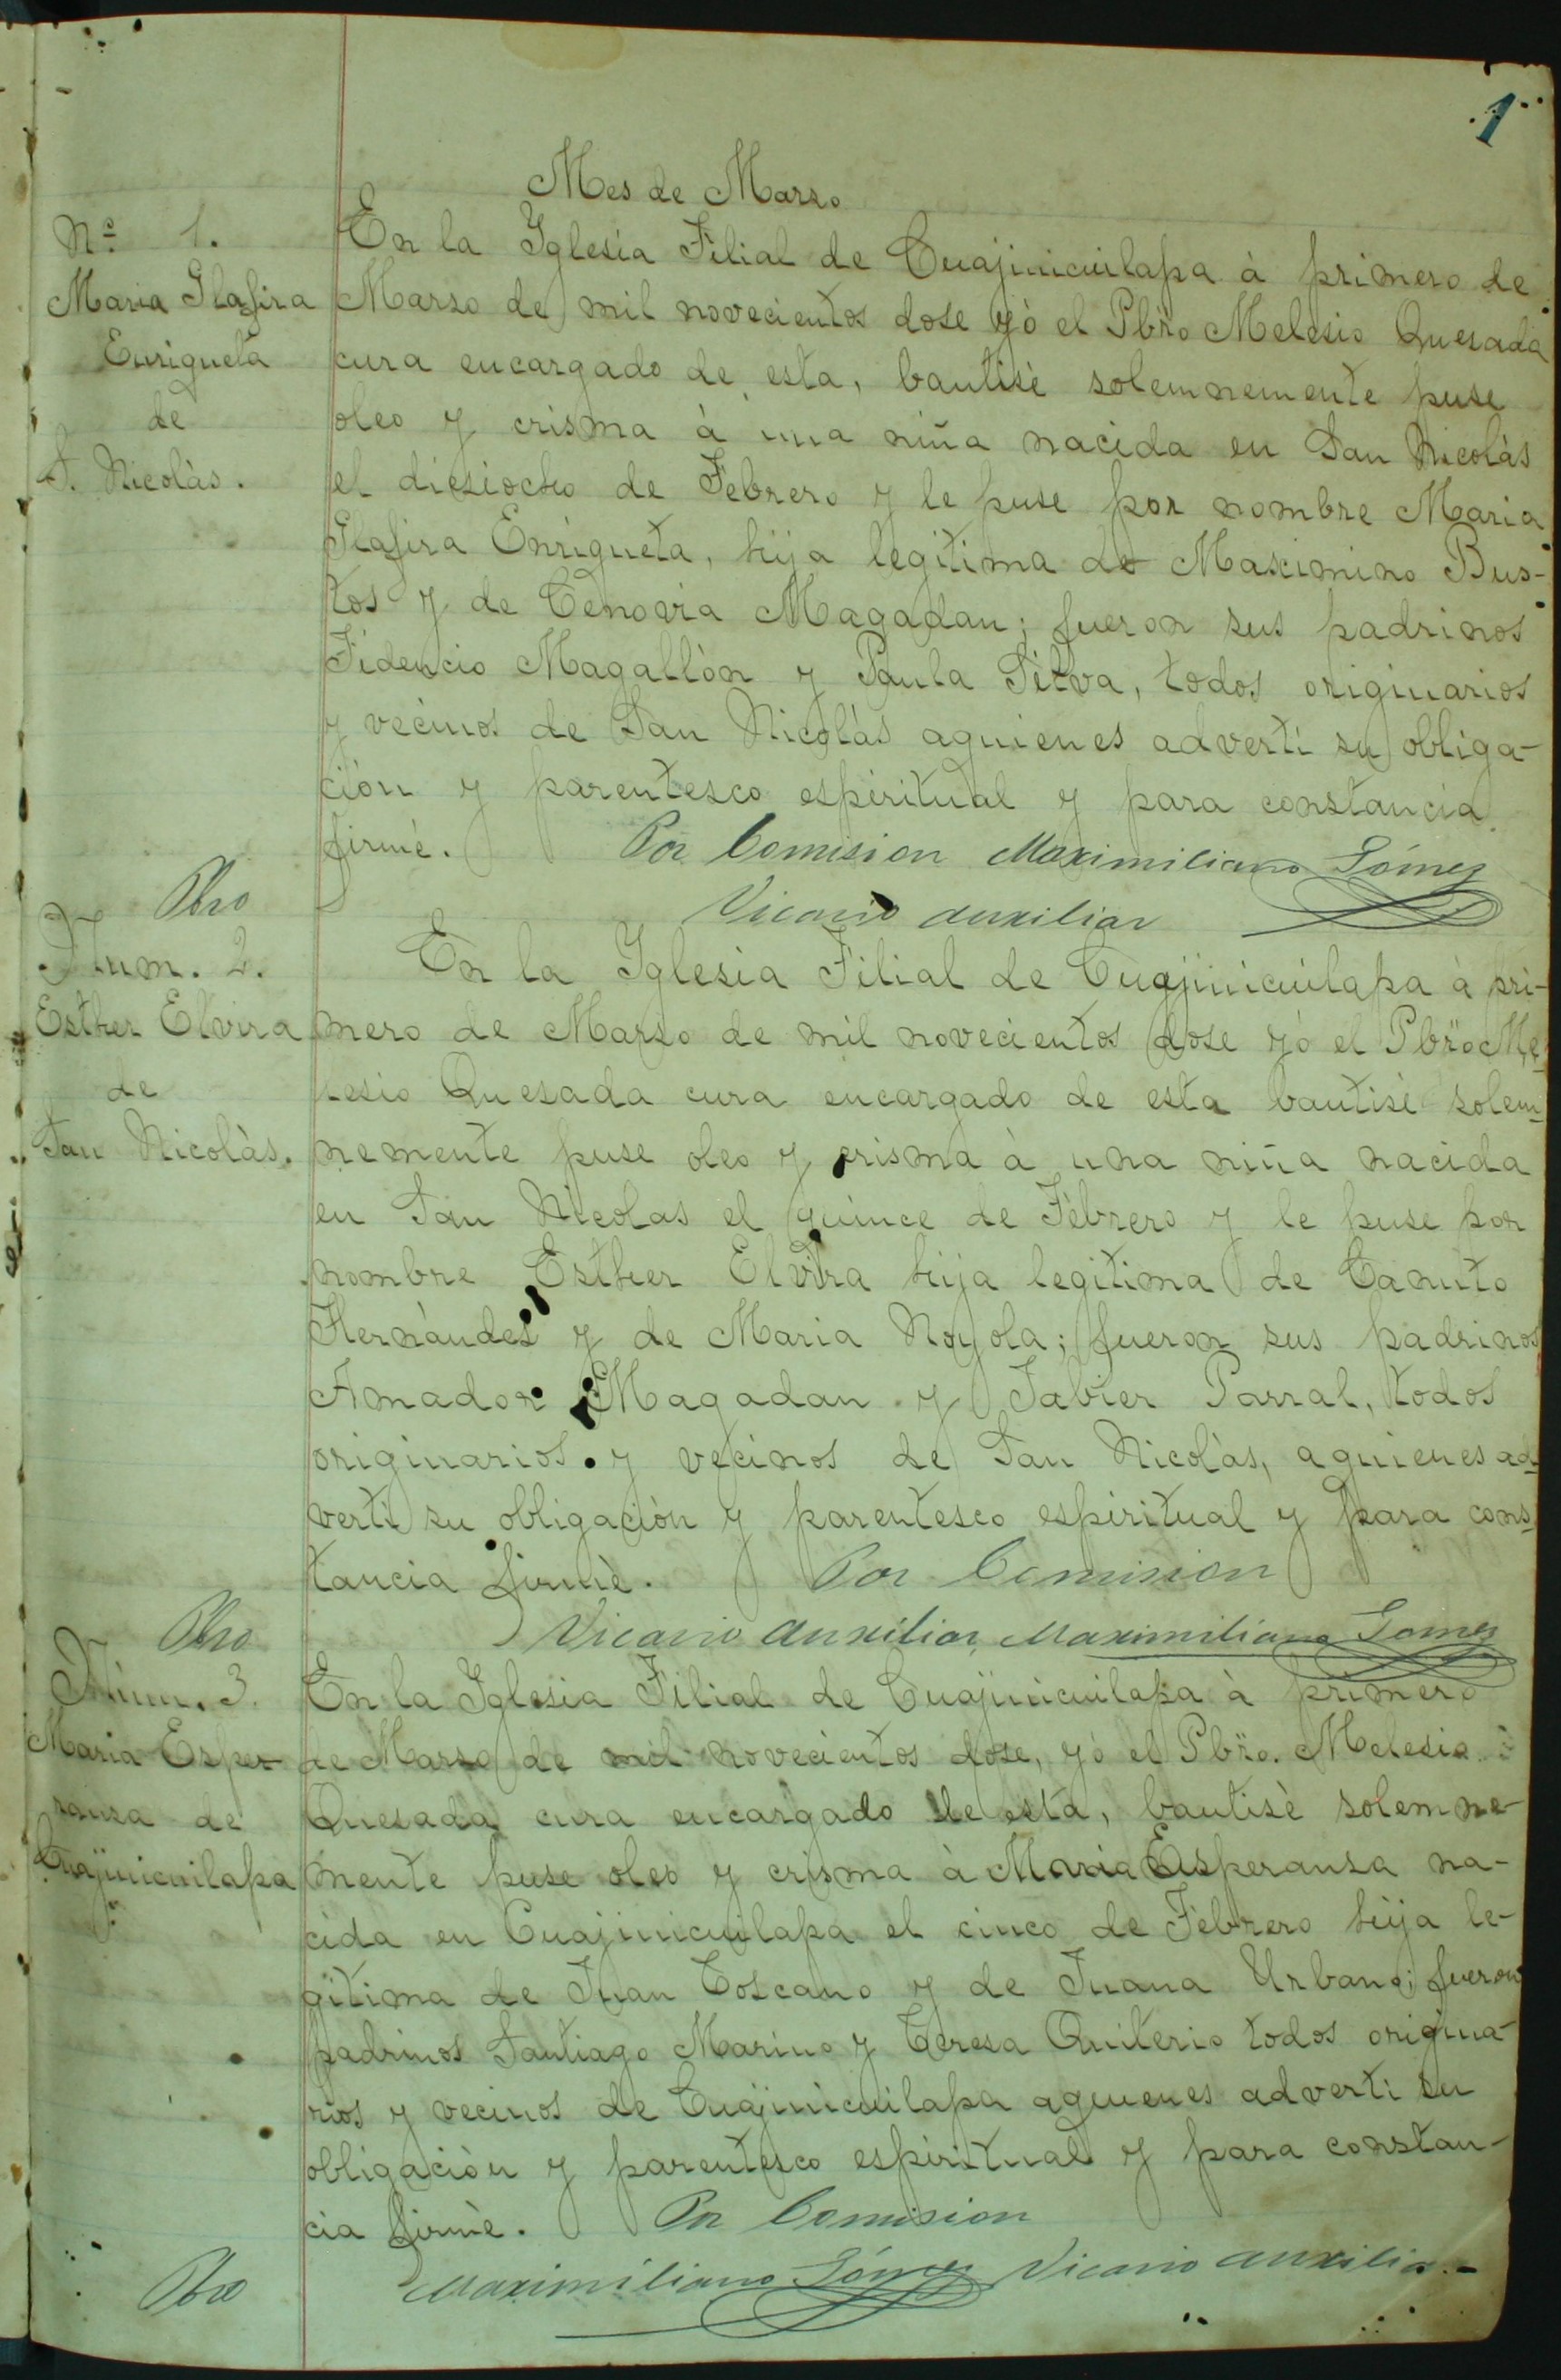 1
Mes de Marzo
Nº 1.
Maria Glafira
Enriqueta
de
S. Nicolàs.
En la Yglesia Filial de Cuajinicuilapa à primero de
Marzo de mil novecientos dose yó el Pbro Melesio Quesada
cura encargado de esta, bautisè solemnemente puse
oleo y crisma à una niña nacida en San Nicolàs
el diesiocho de Febrero y le puse por nombre Maria
Glafira Enriqueta, hija legitima de Maximino Bus-
tos y de Cenovia Magadan; fueron sus padrinos
Fidencio Magallòn y Paula Silva, todos originarios
y vecinos de San Nicolàs aquienes advertì su obliga-
ciòn y parentesco espiritual y para constancia
firmè. Por Comision Maximiliano Gómez
Vicario auxiliar
Pbro
Num. 2.
Esther Elvira
de
San Nicolàs.
En la Yglesia Filial de Cuajinicuilapa à pri-
mero de Marzo de mil novecientos dose yó el Pbro Me-
lesio Quesada cura encargado de esta bautisè solem-
nemente puse oleo y crisma à una niña nacida
en San Nicolas el quince de Febrero y le puse por
nombre Esther Elvira hija legitima de Canuto
Hernàndes y de Maria Noyola; fueron sus padrinos
Amador Magadan y Javier Parral, todos
originarios y vecinos de San Nicolàs, aquienes ad-
vertì su obligaciòn y parentesco espiritual y para cons-
tancia firmè. Por Comision
Vicario Auxiliar, Maximiliano Gomez
Pbro
Nùm. 3.
Maria Espe-
ransa de
Cuajinicuilapa
En la Yglesia Filial de Cuajinicuilapa à primero
de Marzo de mil novecientos dose, yó el Pbro. Melesio
Quesada cura encargado de esta, bautisè solemne-
mente puse oleo y crisma à Maria Esperansa na-
cida en Cuajinicuilapa el cinco de Febrero hija le-
gitima de Juan Toscano y de Juana Urbano; fueron
padrinos Santiago Marino y Teresa Quiterio todos origina-
rios y vecinos de Cuajinicuilapa aquienes advertì su
obligaciòn y parentesco espiritual y para constan-
cia firmè. Por Comision
Pbro Maximiliano Gómez Vicario auxiliar.-